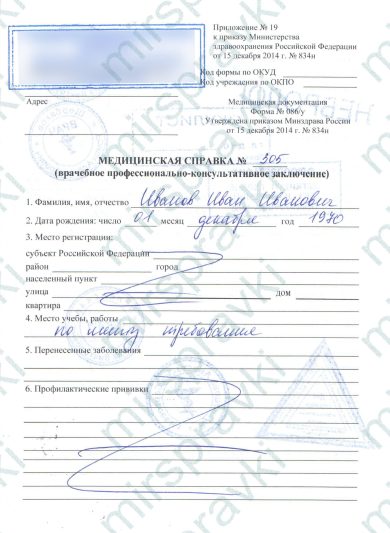 Приложение № 19
к приказу Министерства
здравоохранения Российской Федерации
от 15 декабря 2014 г. № 834н
Код формы по ОКУД
Код учреждения по ОКПО
Адрес
Медицинская документация
Форма № 086/у
Утверждена приказом Минздрава России
от 15 декабря 2014 г. № 834н
МЕДИЦИНСКАЯ СПРАВКА № 305
(врачебное профессионально-консультативное заключение)
1. Фамилия, имя, отчество Иванов Иван Иванович
2. Дата рождения: число 01 месяц декабря год 1970
3. Место регистрации:
субъект Российской Федерации
район город
населенный пункт
улица дом
квартира
4. Место учебы, работы
по месту требования
5. Перенесенные заболевания
6. Профилактические прививки
mirspravki